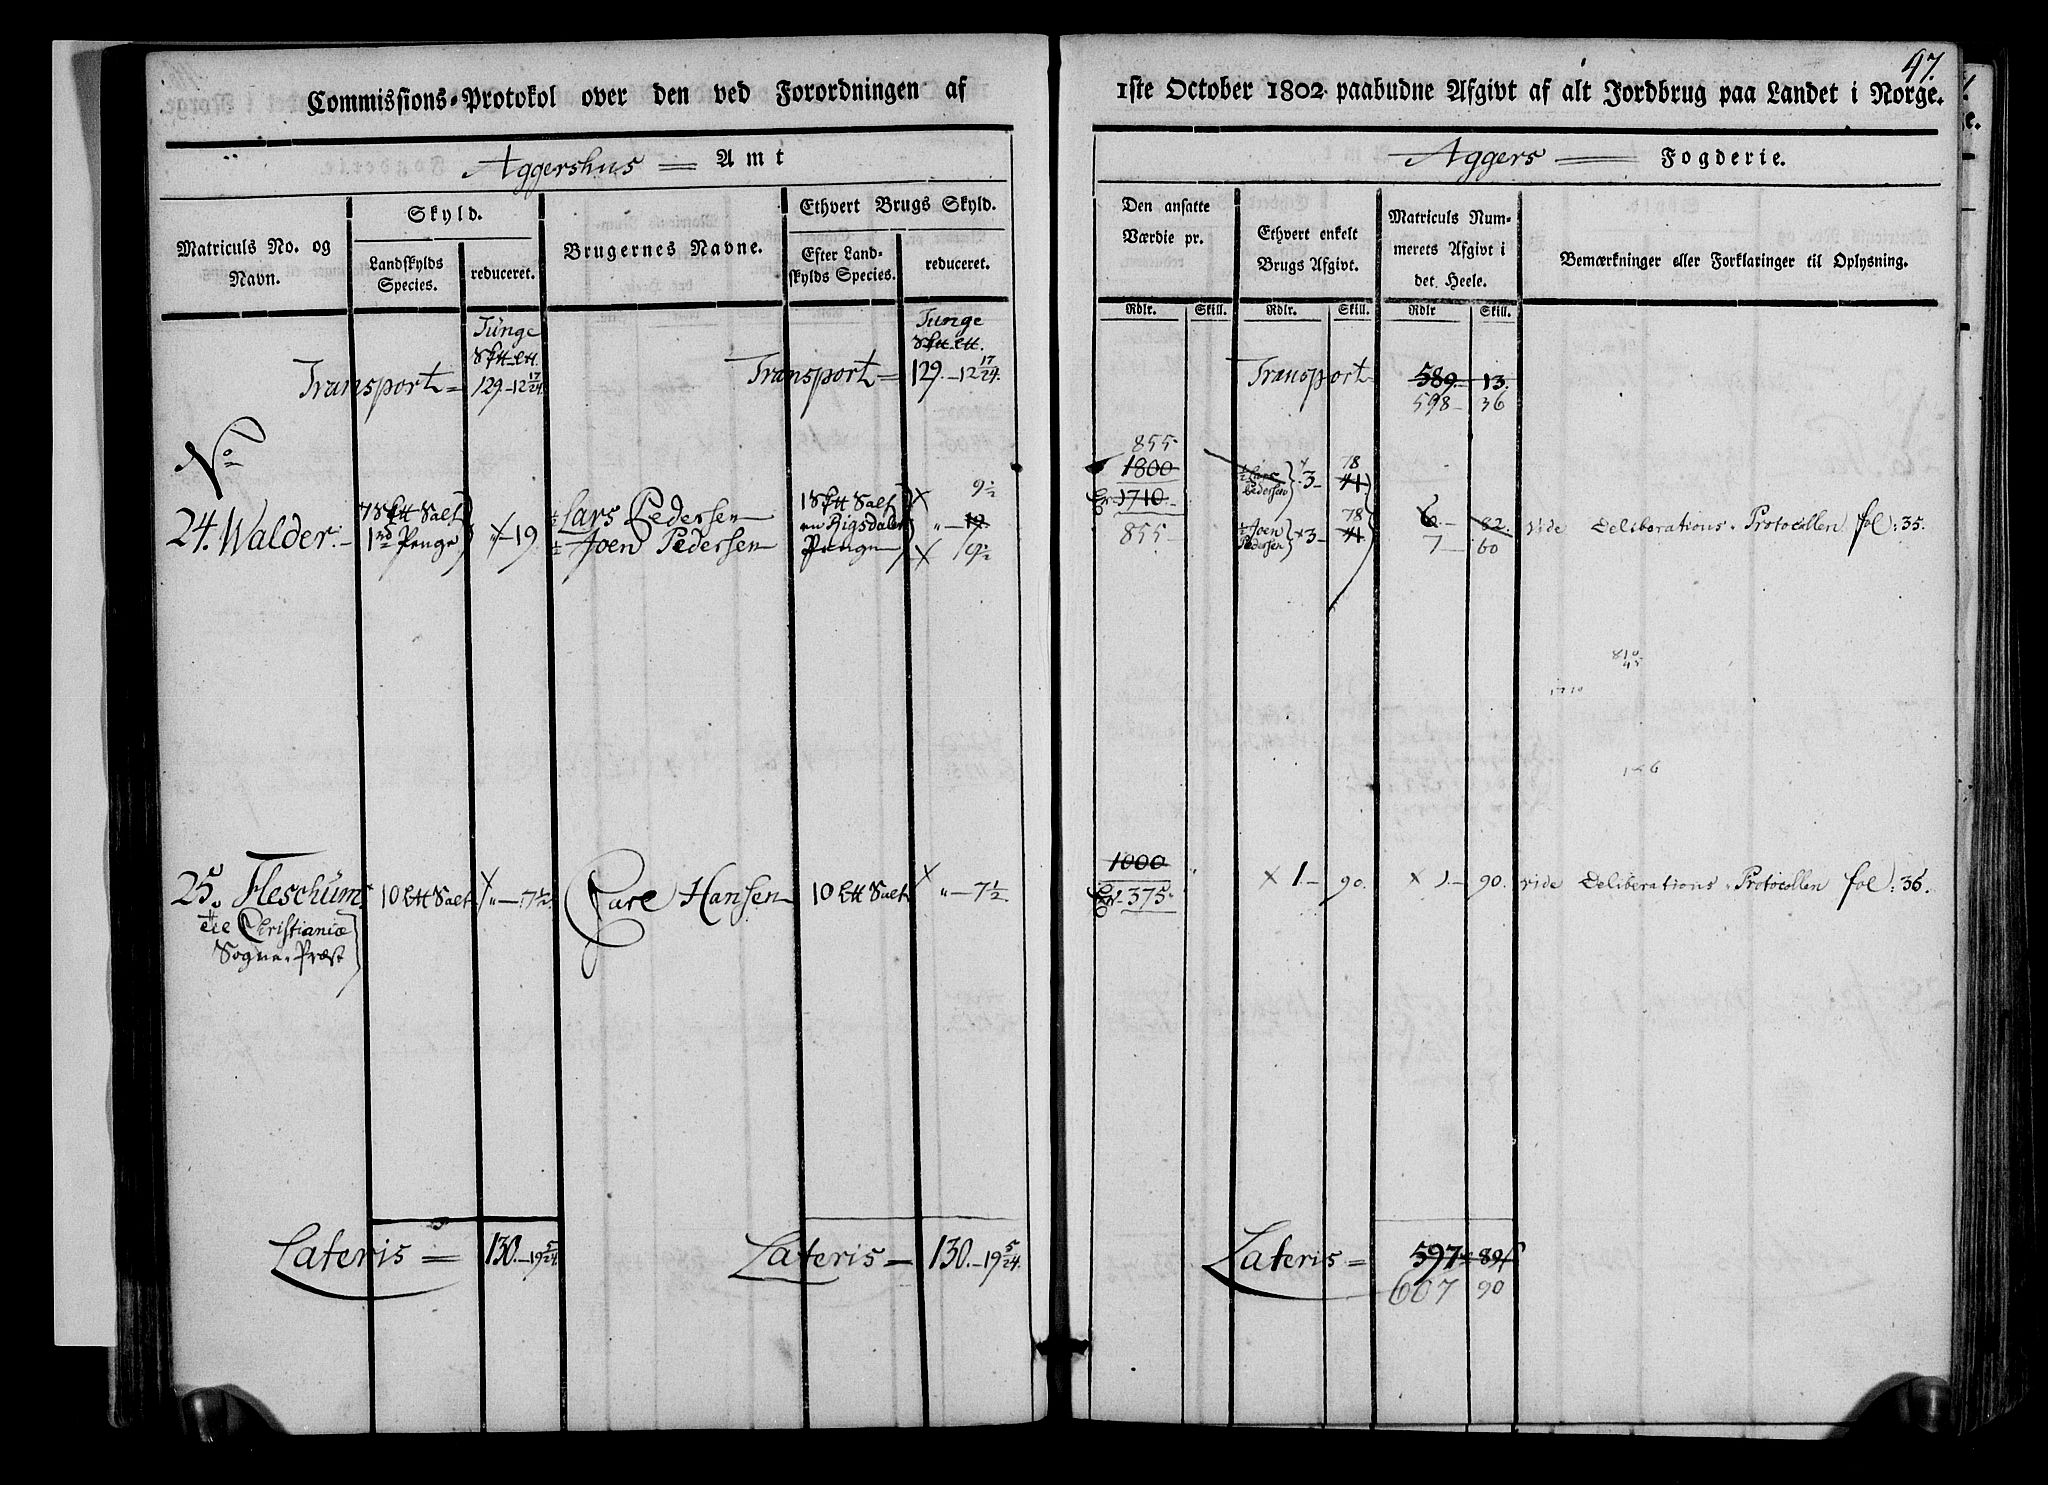 47.
Commissions-Protokol over den ved Forordningen af 1ste October 1802 paabudne Afgivt af alt Jordbrug paa Landet i Norge.
Aggershus Amt
Aggers Fogderie.
Matriculs No. og Navn.
Skyld.
Landskylds Species.
reduceret.
Brugernes Navne.
Ethvert Brugs Skyld.
Efter Landskylds Species.
reduceret.
Den ansatte Værdie pr.
Ethvert enkelt Brugs Afgivt.
Matriculs Nummerets Afgivt i det Heele.
Bemærkninger eller Forklaringer til Oplysning.
Rdlr. Skill. Rdlr. Skill. Rdlr Skill.
Tunge Tunge
Transport = 129.-12 17/24 Transport = 129.-12 17/24. Transport 589. 13.
598- 36
No
24. Walder. 1 Lars Pedersen
½ Joen Pedersen
9½
19
9½
855-
1800
1710
855-
½ Lars Pedersen 3- 78
41
½ Joen Pedersen 3- 78
41
6- 82
7- 60
vide Deliberations-Protocollen fol: 35.
810
45
1710
25. Fleschum 10 Salt 7½ Carl Hansen 10 Salt 7½
Christianiæ
Sogne-Præst
1000
375-
1- 90. 1- 90. vide Deliberations-Protocollen fol: 36.
Lateris = 130.-19 5/24. Lateris = 130.-19 5/24. Lateris = 597 89
607 90